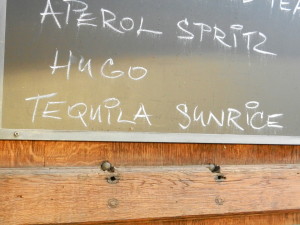 TEA
APEROL SPRITZ
HUGO
TEQUILA SUNRICE